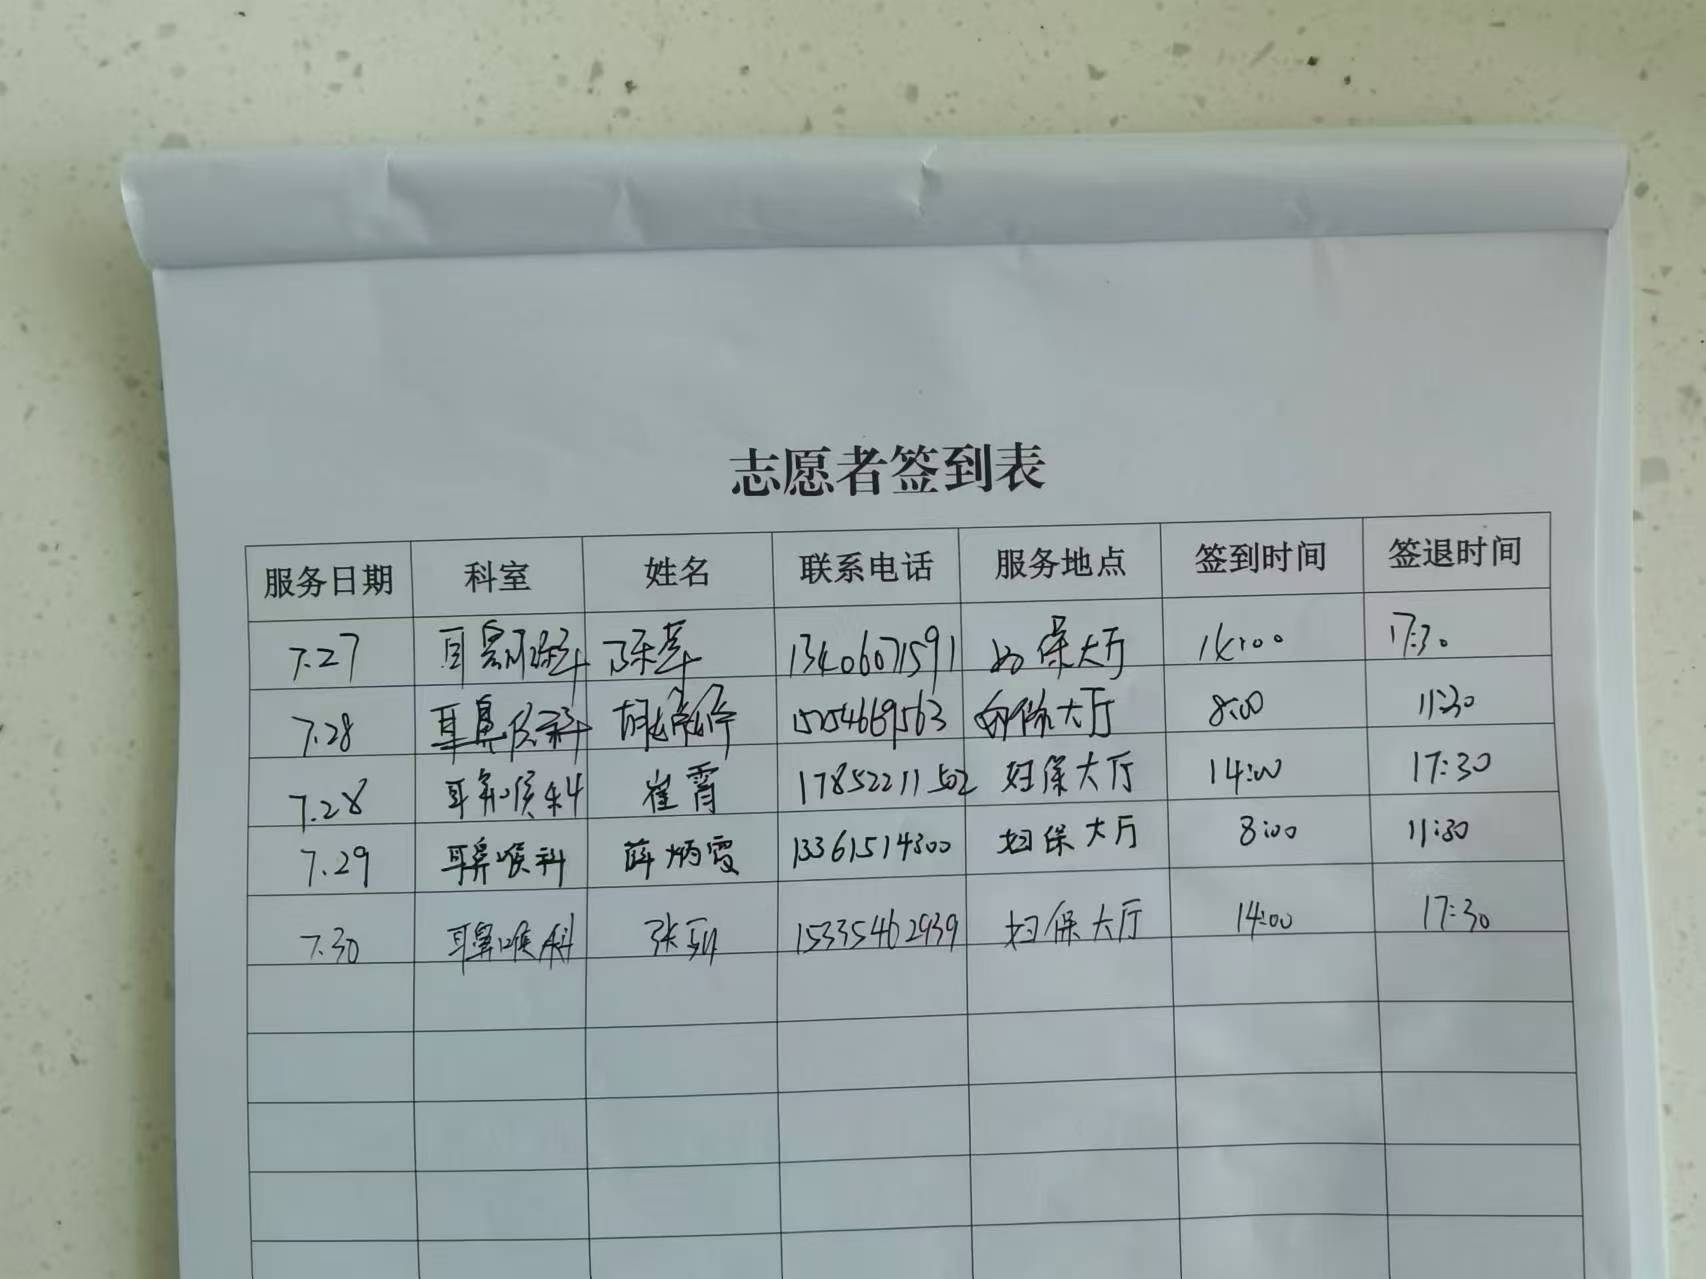 志愿者签到表
服务日期 科室 姓名 联系电话 服务地点 签到时间 签退时间
7.27 耳鼻喉科 陈萃 13406071591 妇保大厅 14:00 17:30
7.28 耳鼻喉科 胡婷婷 15154669563 妇保大厅 8:00 11:30
7.28 耳鼻喉科 崔霄 17852211502 妇保大厅 14:00 17:30
7.29 耳鼻喉科 薛炳霞 13361514300 妇保大厅 8:00 11:30
7.30 耳鼻喉科 张 15335462939 妇保大厅 14:00 17:30